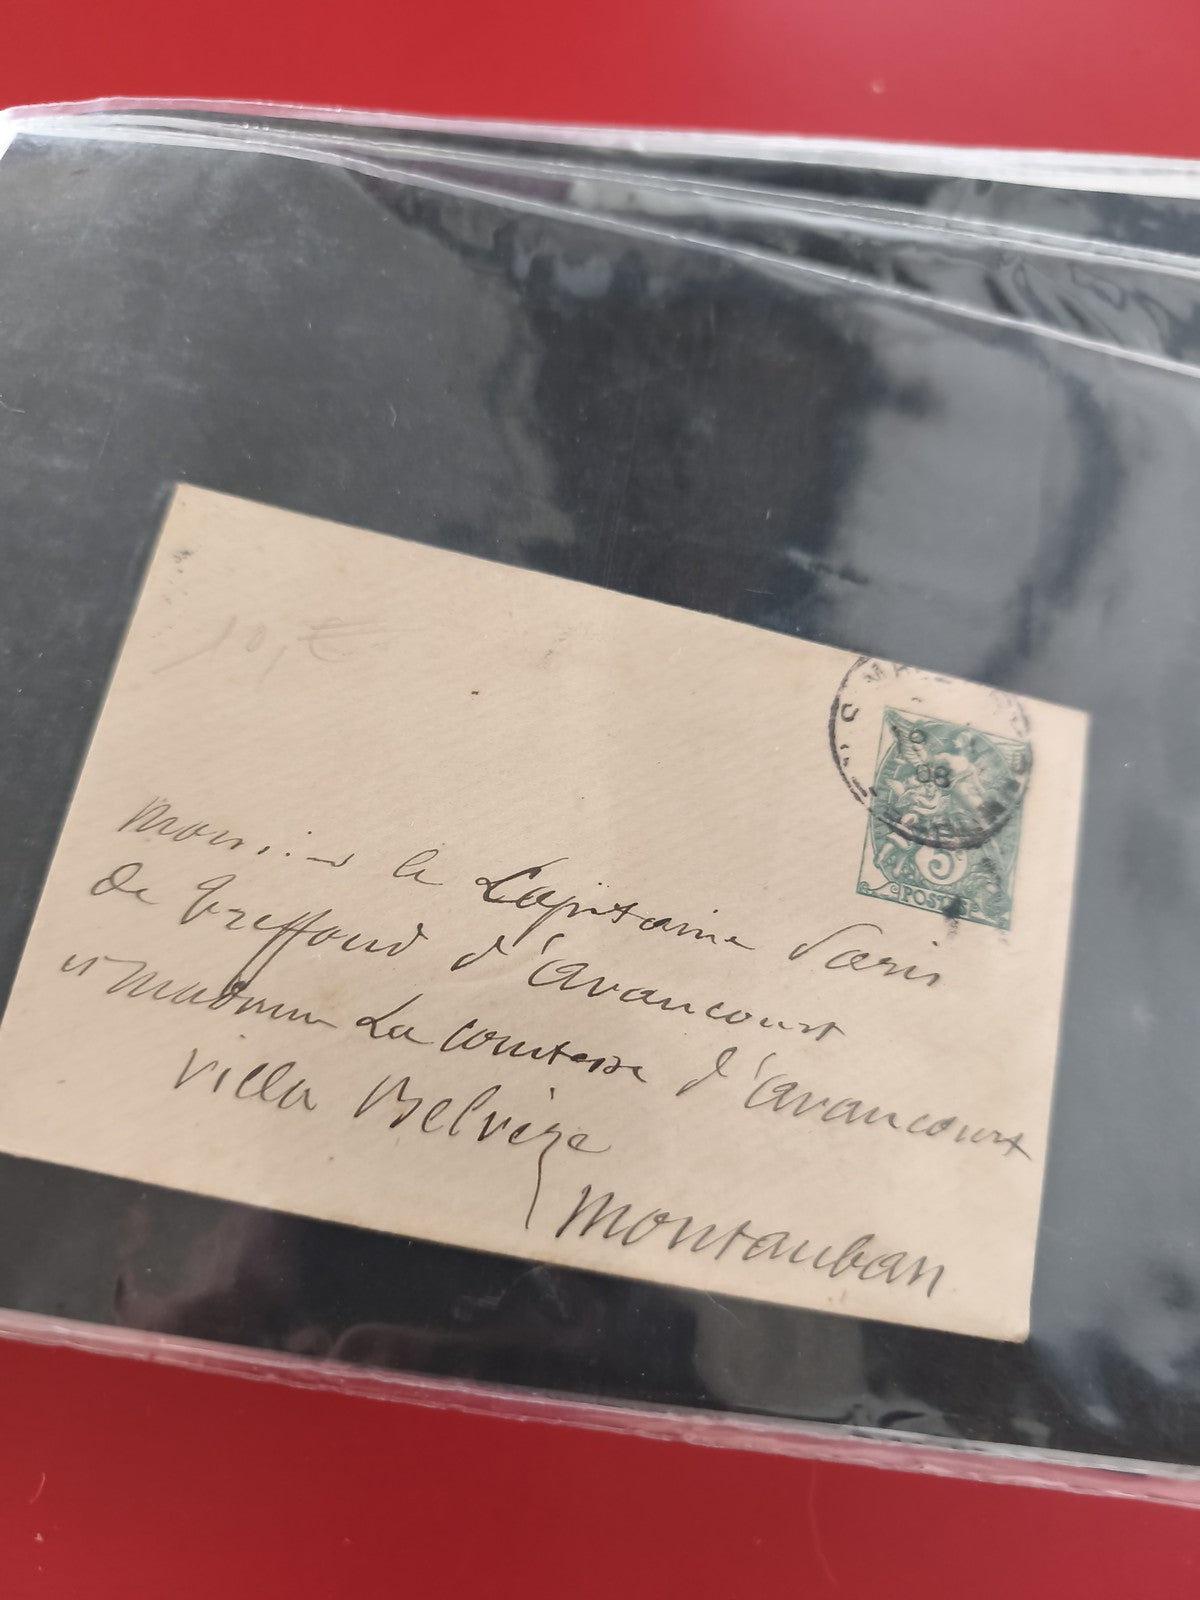 10,€
08
5
POSTES
Monsieur le Capitaine Paris
de Treffond d'avancourt
et Madame La comtesse d'avancourt
Villa Belvèze
Montauban